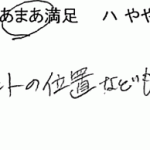 あまあ満足 ハ やや
ントの位置なども